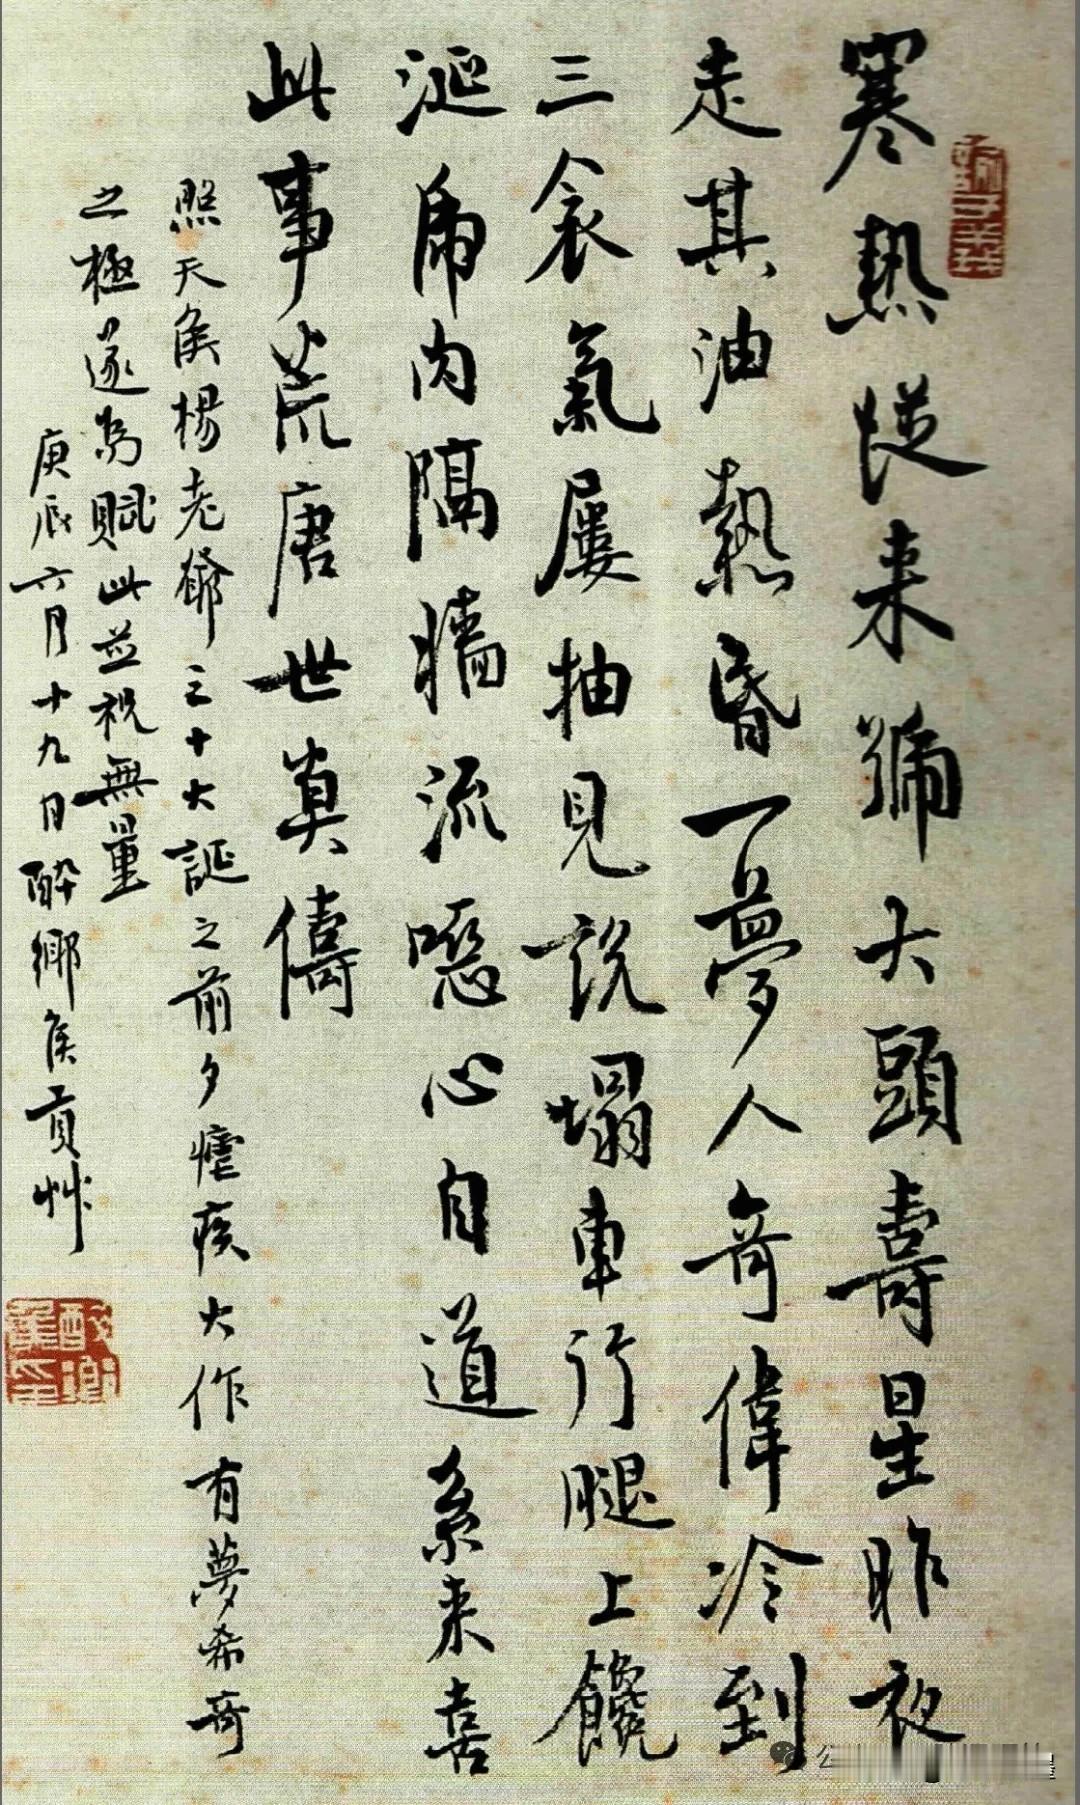 寒熱從来號大頭壽星昨夜
走其油熱昏一夢人奇偉冷到
三衾氣屢抽見説塌車行腿上饞
涎席内隔牆流噁心自道系来喜
此事荒唐世莫儔
照天侯楊老爺三十大誕之前夕瘧疾大作有夢希奇
之極遂為賦此並祝無量
庚辰六月十九日酔鄉侯貢艸